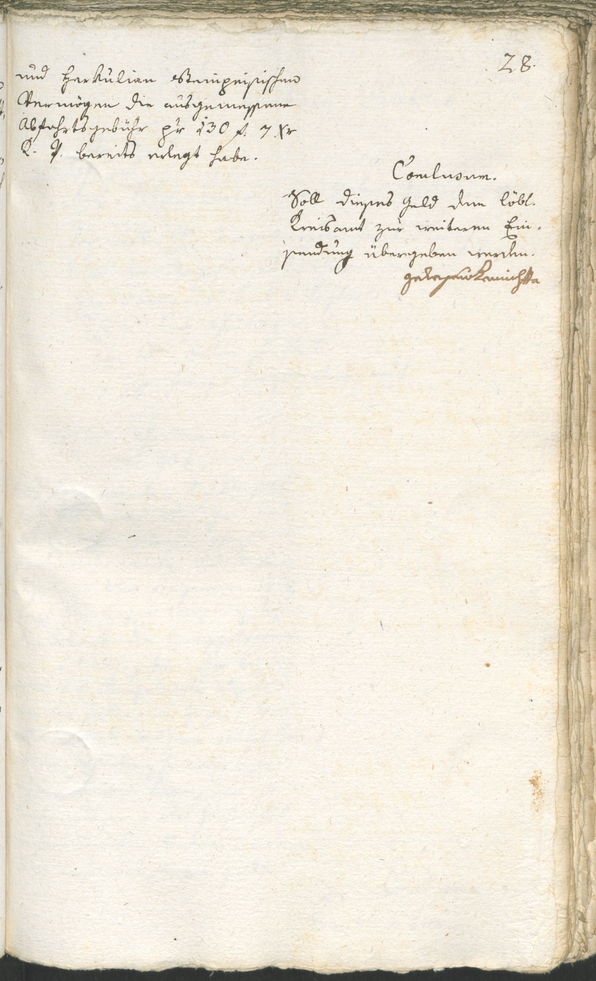 28.
und Herkulian Steinpeisischen
Vermögen die ausgemessene
Abfahrtsgebühr pr 130 f. 7 Xr
bereits erlegt habe.
Conclusum.
Soll dieses Geld dem löbl.
Kreisamt zur weiteren Ein-
sendung übergeben werden.